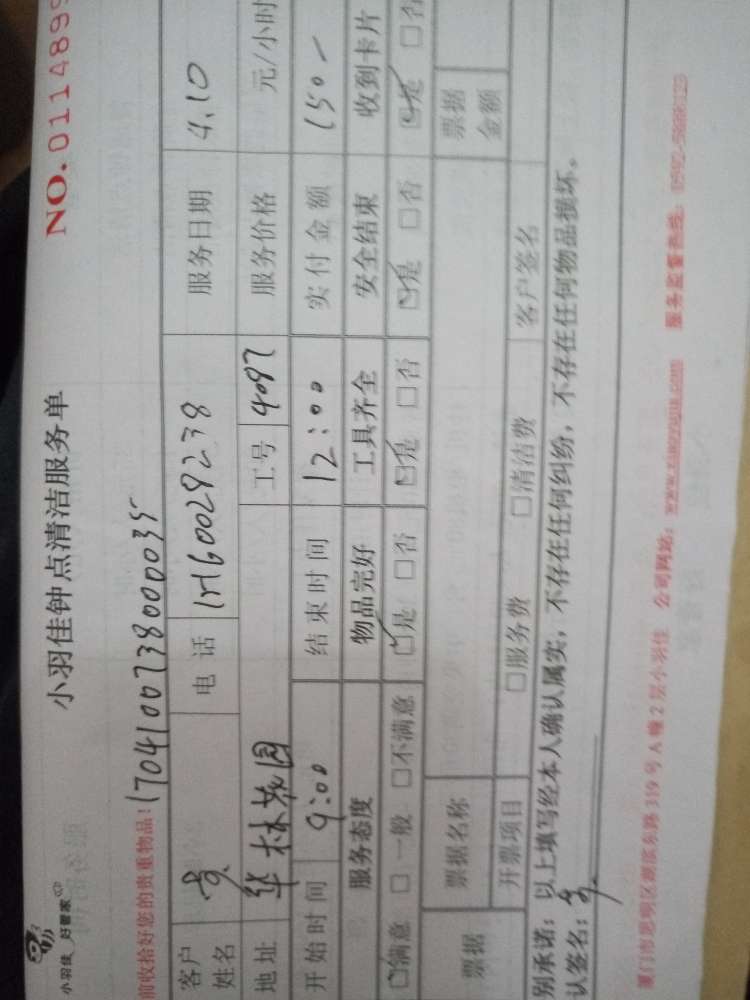 小羽佳 好管家
小羽佳钟点清洁服务单
NO.0114899
前收拾好您的贵重物品！
1704100738000035
客户姓名 电话 服务日期 4.10
地址 华林花园 工号 4097 服务价格 元/小时
开始时间 9:00 结束时间 12:00 实付金额 150-
服务态度 物品完好 工具齐全 安全结束 收到卡片
☑满意 □一般 □不满意 ☑是 □否 ☑是 □否 ☑是 □否 ☑是 □否
票据 票据名称 票据金额
开票项目 □服务费 □清洁费 客户签名
别承诺：以上填写经本人确认属实，不存在任何纠纷，不存在任何物品损坏。
认签名：
厦门市思明区湖滨东路319号A幢2层小羽佳 公司网站： 服务监督热线：